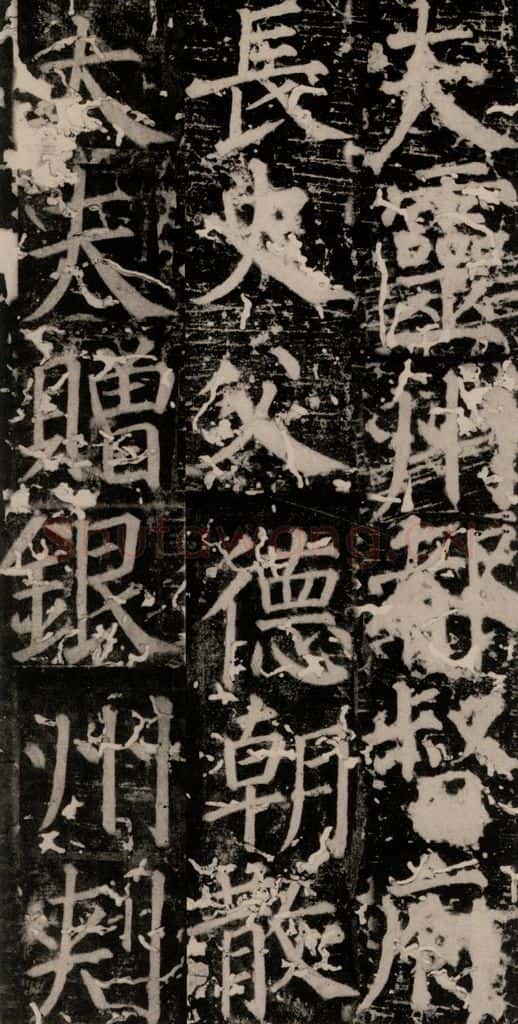 夫靈州都督府
長史父德朝散
大夫贈銀州刺
Shufawang.cn